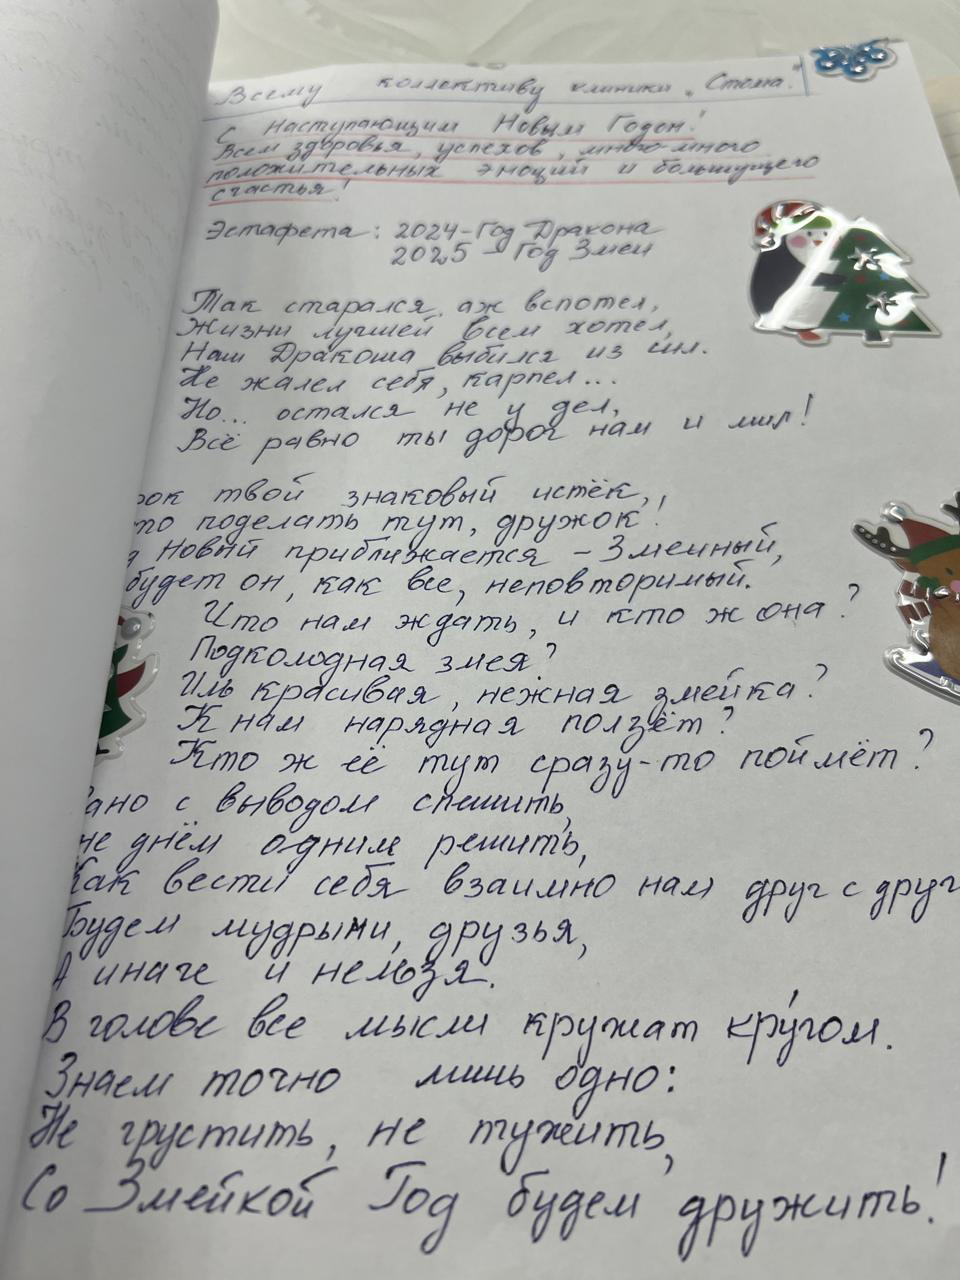 Всему коллективу клиники „Стома."
С Наступающим Новым Годом!
Всем здоровья, успехов, много-много
положительных эмоций и большущего
счастья!
Эстафета: 2024-Год Дракона
2025 – Год Змеи
Так старался, аж вспотел,
Жизни лучшей всем хотел,
Наш Дракоша выбился из сил.
Не жалел себя, карпел...
Но... остался не у дел,
Всё равно ты дорог нам и мил!
рок твой знаковый истёк,
то поделать тут, дружок!
Новый приближается – Змеиный,
будет он, как все, неповторимый.
Что нам ждать, и кто ж она?
Подколодная змея?
Иль красивая, нежная змейка?
К нам нарядная ползёт?
Кто ж её тут сразу-то поймёт?
ано с выводом спешить,
не днём одним решить,
Как вести себя взаимно нам друг с друг
Будем мудрыми, друзья,
А иначе и нельзя.
В голове все мысли кружат кру́гом.
Знаем точно лишь одно:
Не грустить, не тужить,
Со Змейкой Год будем дружить!